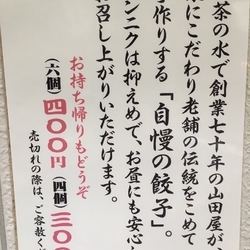 茶の水で創業七十年の山田屋が
にこだわり老舗の伝統をこめて
手作りする「自慢の餃子」。
ンニクは抑えめで、お昼にも安心
お召し上がりいただけます。
お持ち帰りもどうぞ
(六個)四〇〇円(四個)三〇〇
売切れの際は、ご容赦くだ